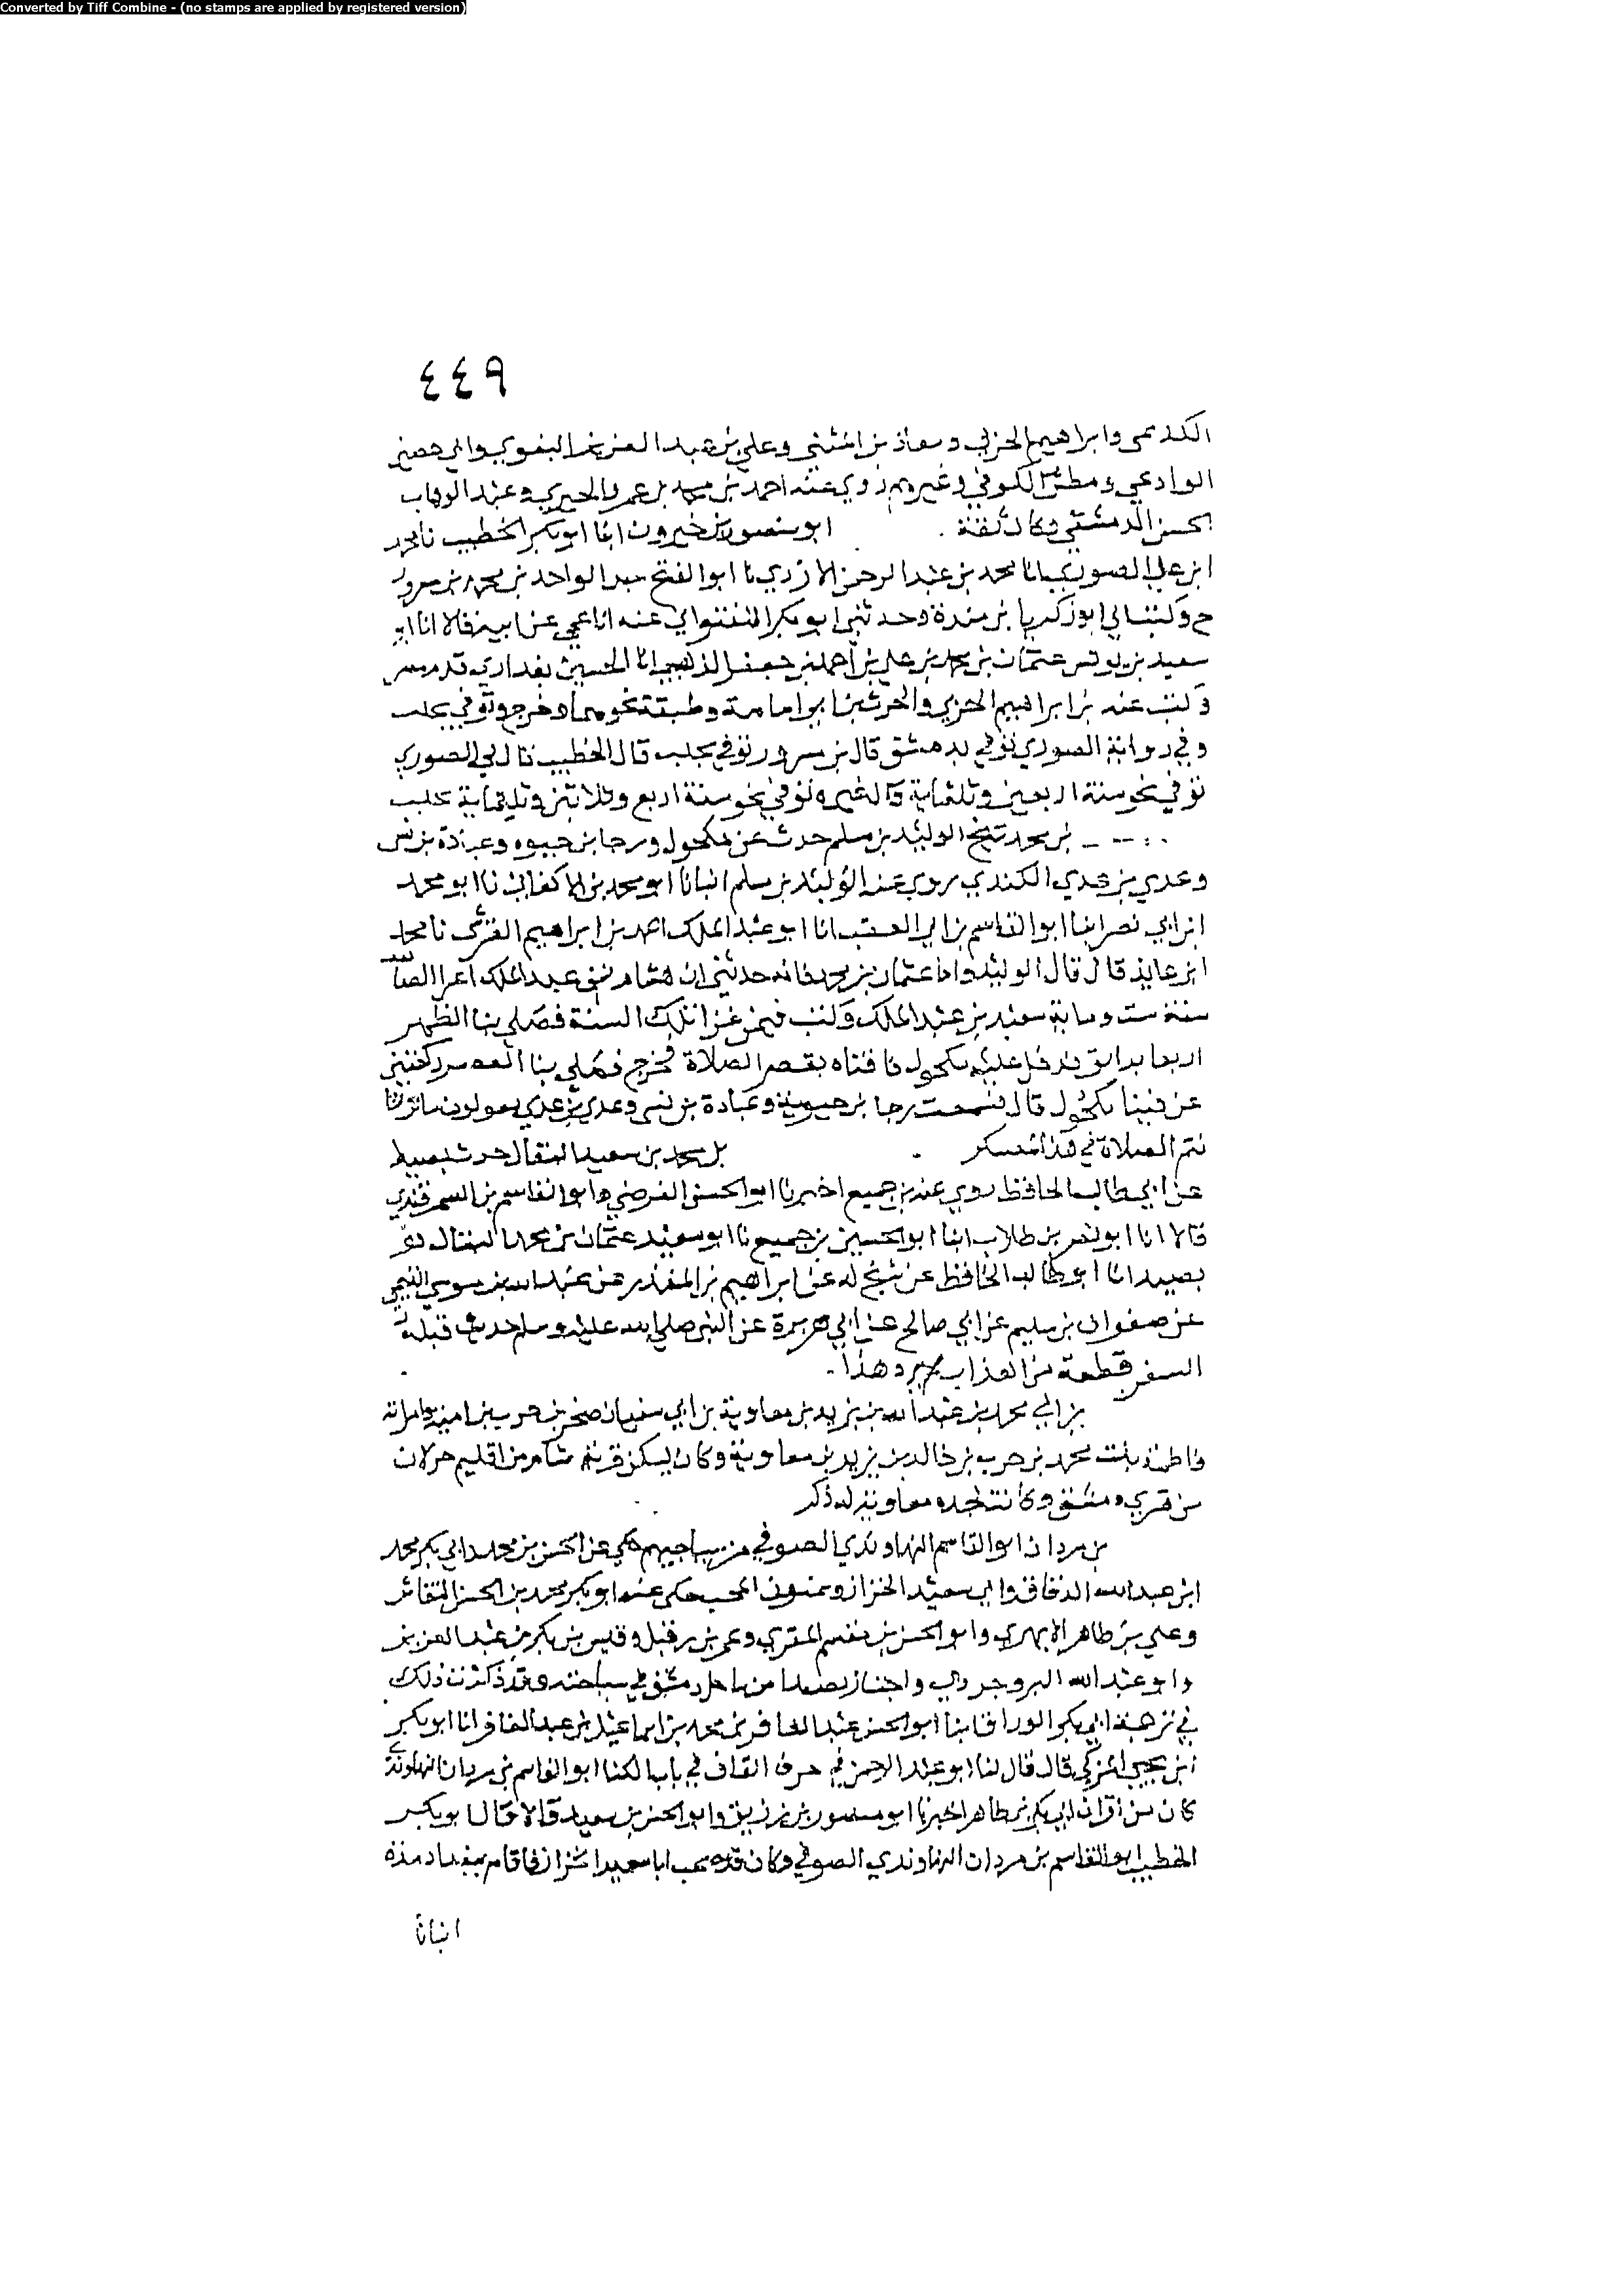 Converted by Tiff Combine - (no stamps are applied by registered version)
٤٤٩
الكديمى وابراهيم الحربي ومعاذ بن المثني وعلي بن عبد العزيز البغوي وابي حصين
الوادعي ومطين الكوفي وغيرهم روي عنه احمد بن محمد بن عمرو الجيزي وعبد الوهاب
الحسن الدمشقي وكان ثقة . ابو منصور بن خيرون انا ابو بكر الخطيب نا محمد
ابن علي الصوري انا محمد بن عبد الرحمن الازدي نا ابو الفتح عبد الواحد بن محمد بن مسرور
ح وكتب الي ابو زكريا بن مندة وحدثني ابو بكر اللفتواني عنه انا عمي عن ابيه قالا انا ابو
سعيد بن يونس عثمان بن محمد بن علي بن احمد بن جعفر الذهبي ابا الحسين بغدادي قدم مصر
وكتب عنه بن ابراهيم الحربي والحرث بن ابي اسامة وطبقة نحوهما وخرج وتوفي بحلب
وفي رواية الصوري توفي بدمشق قال بن مسرور توفي بحلب قال الخطيب قال لي الصوري
توفي نحو سنة اربعين وثلثماية قال غيره توفي نحو سنة اربع وثلاثين وثلثماية بحلب
بن محمد شيخ الوليد بن مسلم حدث عن مكحول ورجا بن حيوه وعبادة بن نسى
وعدي بن عدي الكندي روي عنه الوليد بن مسلم انبانا ابو محمد بن الاكفاني نا ابو محمد
ابن ابي نصر انبا ابو القاسم بن ابي العقب انا ابو عبد الملك احمد بن ابراهيم القرشى نا محمد
ابن عايذ قال قال الوليد واما عثمان بن محمد فانه حدثني ان هشام بن عبد الملك اغزا الصائفة
سنة ست وماية سعيد بن عبد الملك وكنت فيمن غزا تلك السنة فصلي بنا الظهر
اربعا بدابق فدخل عليه مكحول فافتاه بقصر الصلاة فخرج فصلي بنا العصر ركعتين
عن فتيا مكحول قال فسمعت رجا بن حيوة وعبادة بن نسى وعدي بن عدي يقولون
نتم الصلاة في هذا العسكر . بن محمد بن سعيد البقال حدث بصيدا
عن ابي طالب الحافظ روي عنه بن جميع اخبرنا ابو الحسن الفرضي وابو القاسم بن السمرقندي
قالا انا ابو نصر بن طلاب انبا ابو الحسين بن جميع نا ابو سعيد عثمان بن محمد البقال
بصيدا نا ابو طالب الحافظ عن شيخ له عن ابراهيم بن المنذر عن عبد الله بن موسي التيمي
عن صفوان بن سليم عن ابي صالح عن ابي هريرة عن النبي صلي الله عليه وسلم حدث قبله
السفر قطعة من العذاب لم يزد هذا .
بن ابي محمد بن عبد الله بن يزيد بن معاوية بن ابي سفيان صخر بن حرب بن امية وامراته
فاطمة بنت محمد بن حرب بن خالد بن يزيد بن معاوية وكان يسكن قرية من اقليم خولان
من قري دمشق وكانت لجده معاوية له ذكر
بن مردان ابو القاسم النهاوندي الصوفي من سياحيهم حكي عن الحسن بن محمد ابي بكر محمد
ابن عبد الله الدقاق وابي سعيد الخزاز وسمنون المحب حكى عنه ابو بكر محمد بن الحسن النقاش
وعلي بن طاهر الابهري وابو الحسن بن مقسم المقري وعمر بن رفيل وقيس بن بكر بن عبد العزيز
وابو عبد الله البروجردي واجتاز بصيدا من ساحل دمشق في سياحته وقد ذكرت ذلك
في ترجمة ابي بكر الوراق انبا ابو الحسن عبد الغافر بن محمد بن اسماعيل بن عبد الغافر انا ابو بكر
ابن يحيى المزكي قال قال لنا ابو عبد الرحمن في حرف القاف في باب الكنا ابو القاسم بن مردان النهاوندي
كان من اقران ابي بكر بن طاهر اخبرنا ابو منصور بن زريق وابو الحسن بن سعيد قالا قال ابو بكر
الخطيب ابو القاسم بن مردان النهاوندي الصوفي وكان قد صحب ابا سعيد الخزاز فاقام ببغداد مدة
انبانا